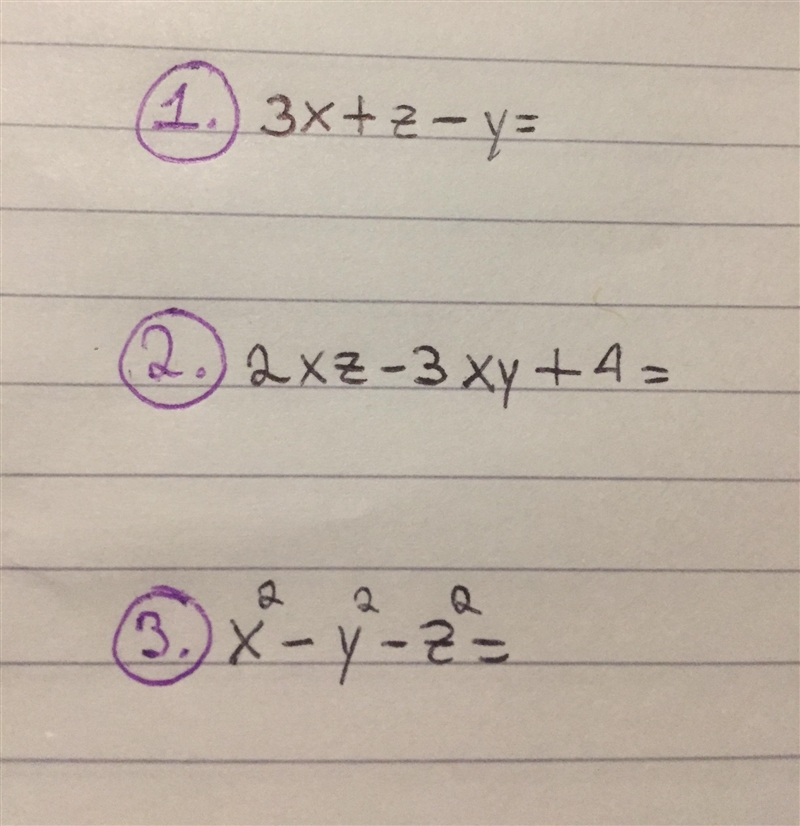 1. 3x+z-y=
2. 2xz-3xy+4=
3. x²-y²-z²=